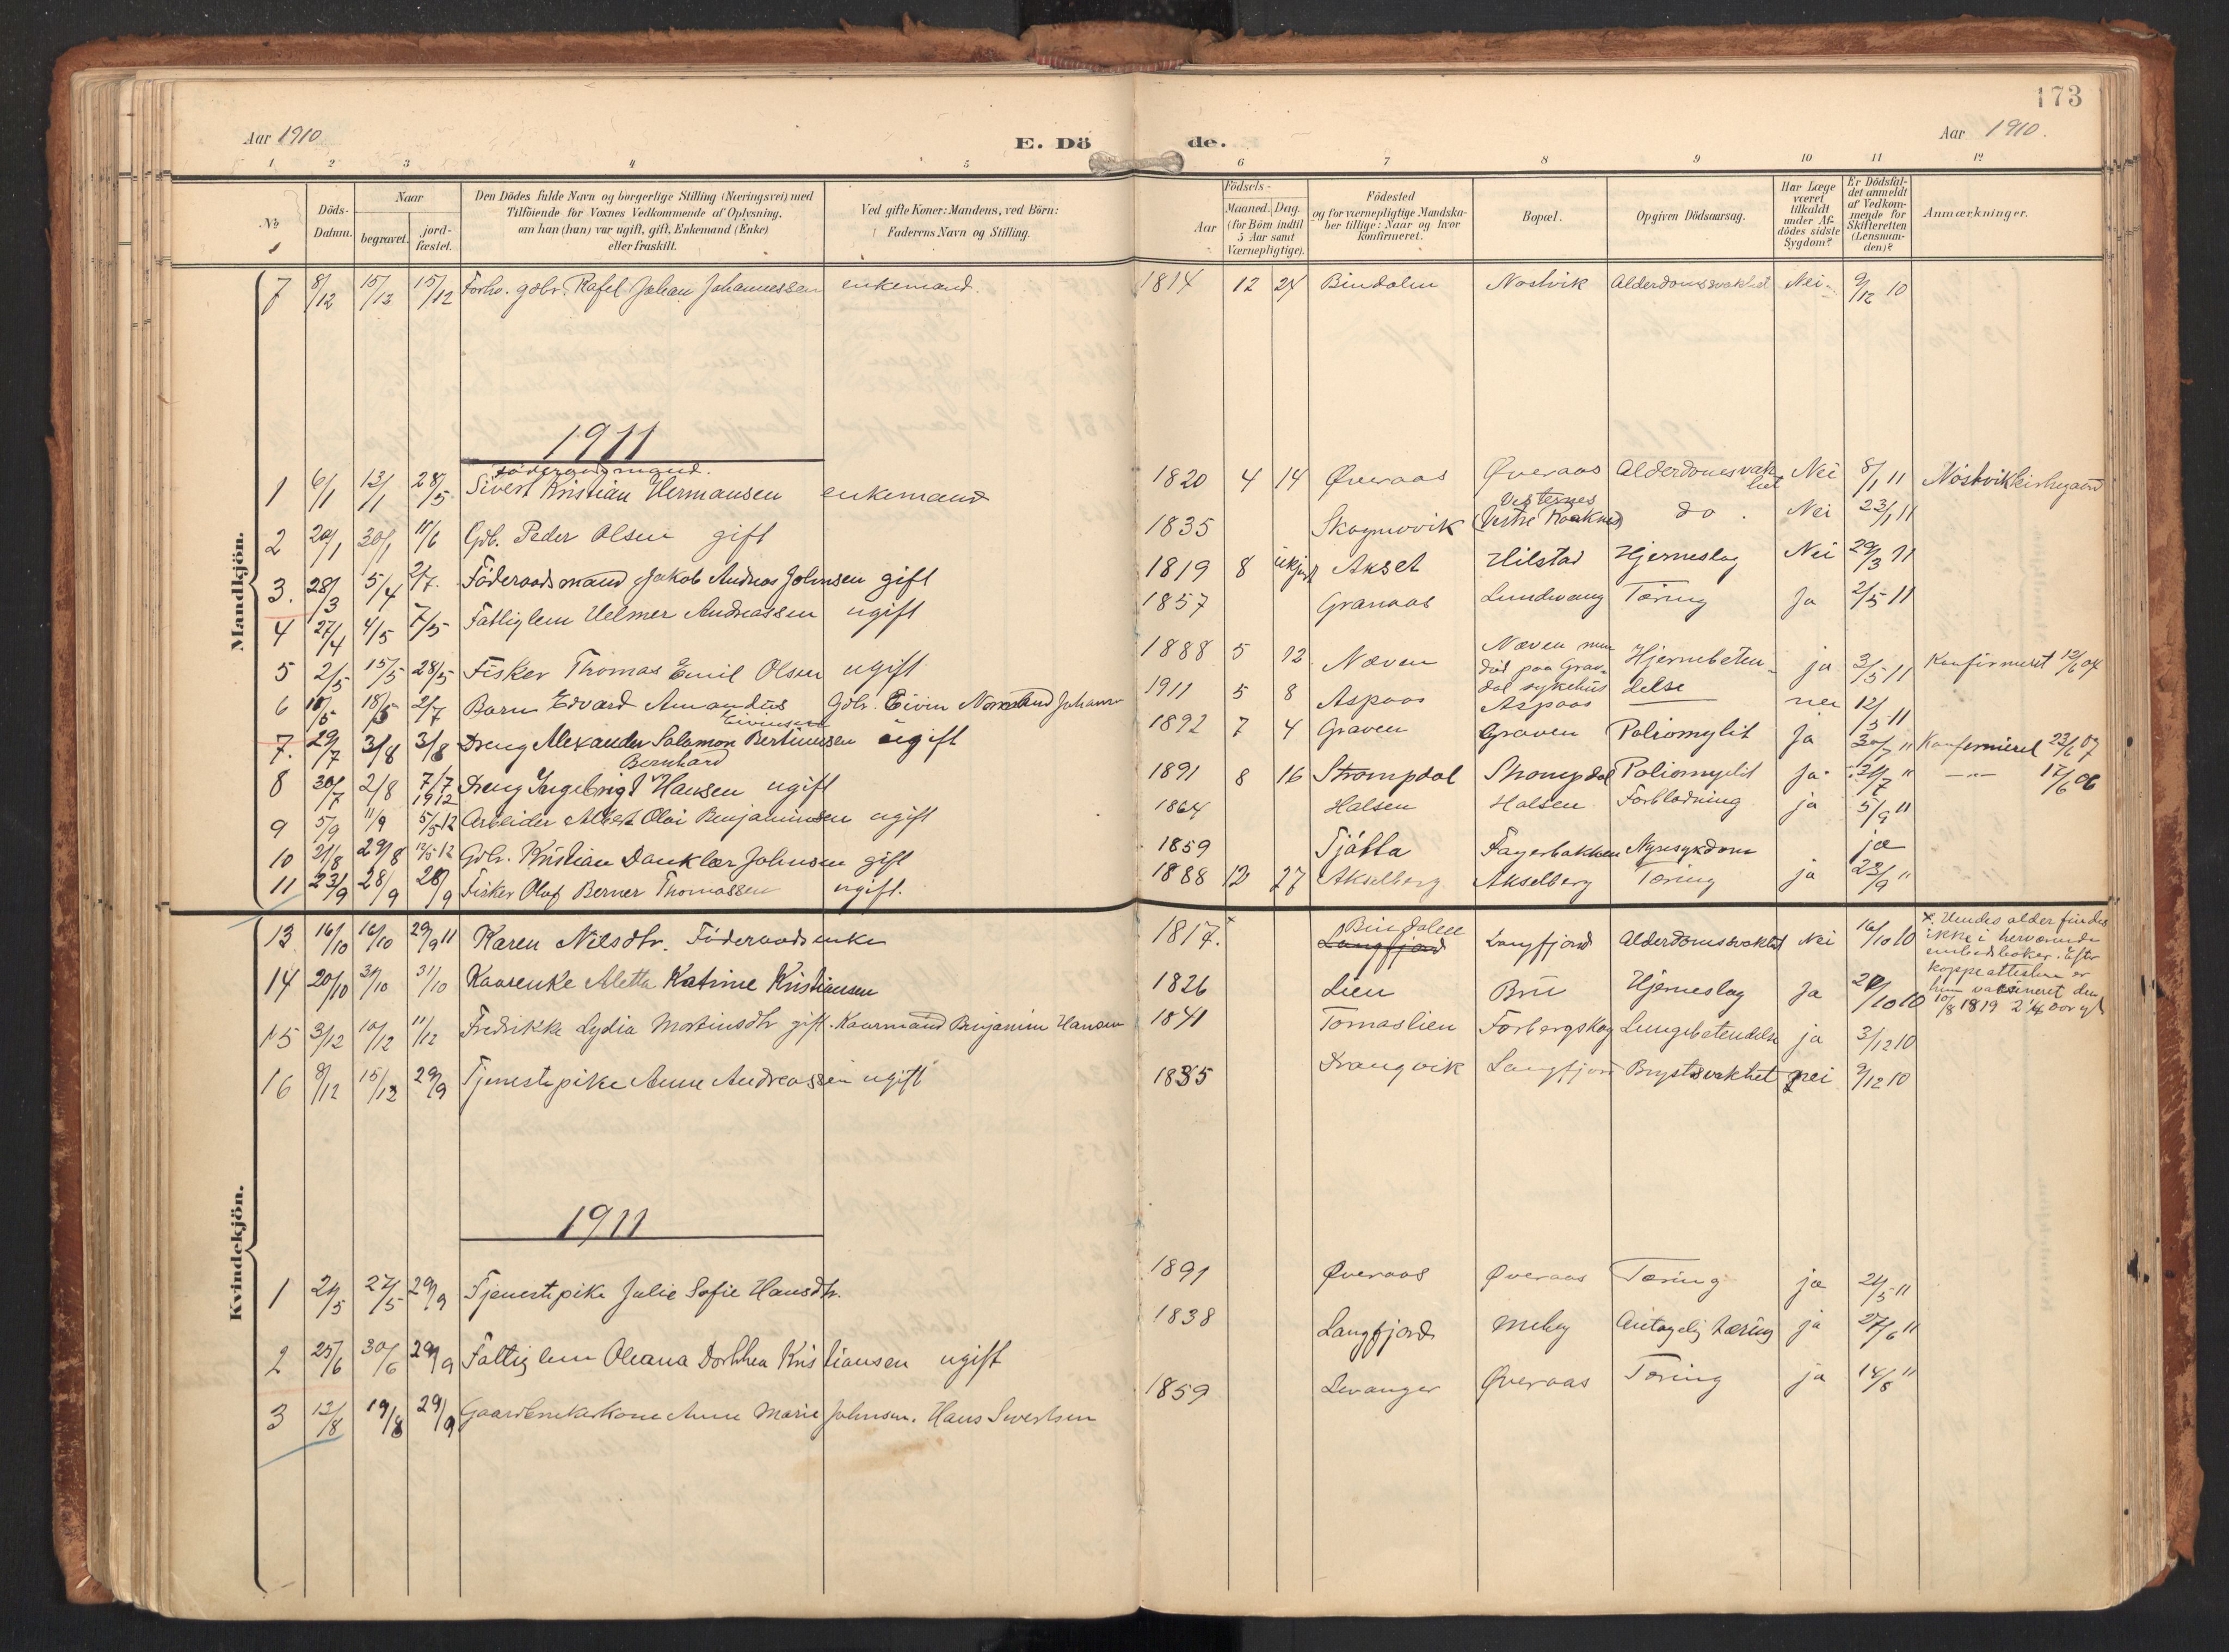 173
Aar 1910
E. Dö
de.
Aar 1910.
1 2 3 4 5 6 7 8 9 10 11 12
No
Döds-Datum.
Naar
begravet.
jord-fæstet.
Den Dödes fulde Navn og borgerlige Stilling (Næringsvei) med
Tilföiende for Voxnes Vedkommende af Oplysning,
om han (hun) var ugift, gift, Enkemand (Enke)
eller fraskilt.
Ved gifte Koner: Mandens, ved Börn:
Faderens Navn og Stilling.
Födsels-
Aar
Maaned. Dag.
(for Börn indtil
5 Aar samt
Værnepligtige).
Födested
og for værnepligtige Mandska-
ber tillige: Naar og hvor
konfirmeret.
Bopæl.
Opgiven Dödsaarsag.
Har Læge
været
tilkaldt
under Af-
dödes sidste
Sygdom?
Er Dödsfal-
det anmeldt
af Vedkom-
mende for
Skifteretten
(Lensman-
den)?
Anmærkninger.
Mandkjön.
7 8/12 15/12 15/12 Forhv. gdbr. Rafel Johan Johannessen enkemand. 1814 12 24 Bindalen Nostvik Alderdomssvakhet Nei 9/12 10
1911
1 6/1 13/1 28/5 Föderaadsmand. Sivert Kristian Hermansen enkemand 1820 4 14 Øveraas Øveraas Alderdomssvakhet Nei 8/1 11 Nostvik kirkegaard
2 20/1 30/1 11/6 Gdb. Peder Olsen gift 1835 Skogmovik Vesternes do. Nei 23/1 11
3. 28/3 5/4 2/7. Föderaadsmand Jakob Andreas Johnsen gift 1819 8 Akset Hilstad Hjerneslag Nei 29/3 11
4 27/4 4/5 7/5 Fattiglem Helmer Andreassen ugift 1857 Granaas Lundevang Tæring Ja 2/5 11
5 2/5 15/5 28/5 Fisker Thomas Emil Olsen ugift 1888 5 12 Næven Næven men död paa Gravdal sykehus Hjernebetendelse ja 3/5 11 Konfirmert 12/6 04
6 10/5 18/5 2/7 Barn Edvard Amandus Eivinsen Gdbr. Eivin Johans 1911 5 8 Aspaas Aspaas — nei 12/5 11
7. 29/7 3/8 3/8 Dreng Alexander Salamon Bertinusen ugift 1892 7 4 Graven Graven Poliomylit Ja 30/7 " Konfirmeret 23/6 07
8 30/7 2/8 7/7 1912 Dreng Ingebrigt Bernhard Hansen ugift 1891 8 16 Strompdal Strompdal Poliomyelit Ja 31/7 " —"— 17/6 06
9 5/9 11/9 5/5 12 Arbeider Albert Olai Benjaminsen ugift 1864 Halsen Halsen Forblødning ja 5/9 11
10 21/8 29/8 12/5 12 Gdbr. Kristian Danklar Johnsen gift 1859 Tjøtta Fagerbakken Nyresygdom ja
11 23/9 28/9 28/9 Fisker Olaf Berner Thomassen ugift. 1888 12 27 Akselberg Akselberg Tæring ja 23/9 "
Kvindekjön.
13 16/10 16/10 29/9 11 Karen Nilsdtr. Föderaadsenke 1817. x Bindalen Langfjord Langfjord Alderdomssvakhet Nei 16/10 10 x. Hendes alder findes
ikke i herværende
embedsböker. Efter
koppeattesten er
hun vaksineret den
10/8 1819 2 1/4 aar gl
14 20/10 31/10 31/10 Kaarenke Aletta Katrine Kristiansen 1826 Lien Brü Hjerneslag Ja 21/10 10
15 3/12 10/12 11/12 Fredrikke Lydia Mortinsdtr gift. Kaarmand Benjamin Hansen 1841 Tomaslien Forbergskog Lungebetendelse ja 3/12 10
16 8/12 15/12 29/9 Tjenestepike Anne Andreassen ugift 1835 Drangvik Langfjord Brystsvakhet nei 9/12 10
1911
1 21/5 27/5 29/9 Tjenestepike Julie Sofie Hansdtr. 1891 Øveraas Øveraas Tæring ja 21/5 11
2 25/6 30/6 29/9 Fattiglem Oleana Dorthea Kristiansen ugift 1838 Langfjord Meby Antagelig tæring ja 27/6 "
3 12/8 19/8 29/9 Gaardbrukerkone Anne Marie Johnsen. Hans Sivertsen 1859 Levanger Øveraas Tæring ja 14/8 "